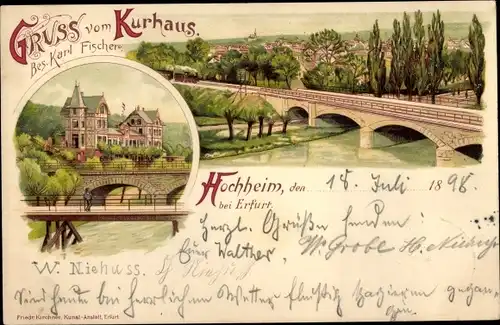 Gruss vom Kurhaus.
Bes. Karl Fischer.
Hochheim, den 18. Juli 1898
bei Erfurt.
Herzl. Grüße senden:
Euer Walther, W. Grobe H.
W. Niehuss.
Sind heute bei herrlichem Wetter
Friedr. Kirchner, Kunst-Anstalt, Erfurt